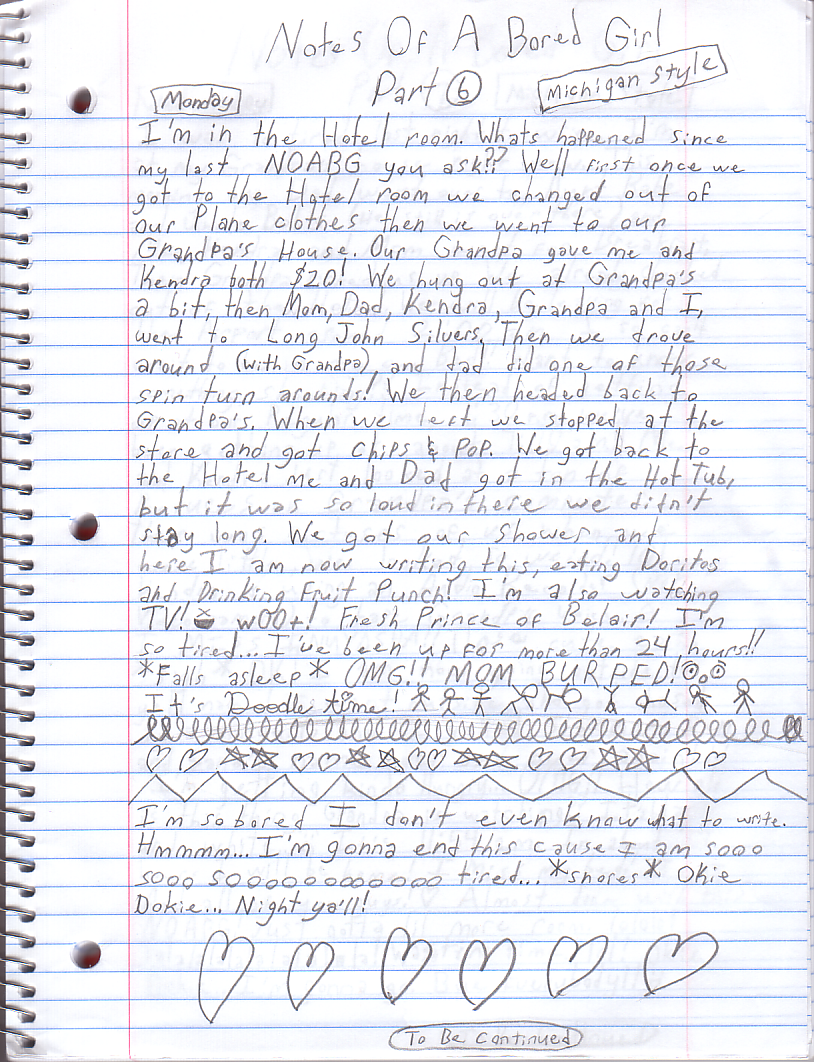 Notes Of A Bored Girl
Part 6
Michigan Style
Monday
I'm in the Hotel room. Whats happened since
my last NOABG you ask?? Well first once we
got to the Hotel room we changed out of
our Plane clothes then we went to our
Grandpa's House. Our Grandpa gave me and
Kendra both $20! We hung out at Grandpa's
a bit, then Mom, Dad, Kendra, Grandpa and I,
went to Long John Silvers. Then we drove
around (with Grandpa), and dad did one of those
spin turn arounds! We then headed back to
Grandpa's. When we left we stopped at the
store and got chips & POP. We got back to
the Hotel me and Dad got in the Hot Tub,
but it was so loud in there we didn't
stay long. We got our shower and
here I am now writing this, eating Doritos
and Drinking Fruit Punch! I'm also watching
TV! w00+! Fresh Prince of Belair! I'm
so tired... I've been up for more than 24 hours!!
*Falls asleep* OMG!! MOM BURPED!
It's Doodle time!
I'm so bored I don't even know what to write.
Hmmmm... I'm gonna end this cause I am sooo
sooo sooooooooooooo tired... *snores* Okie
Dokie... Night ya'll!
To Be Continued